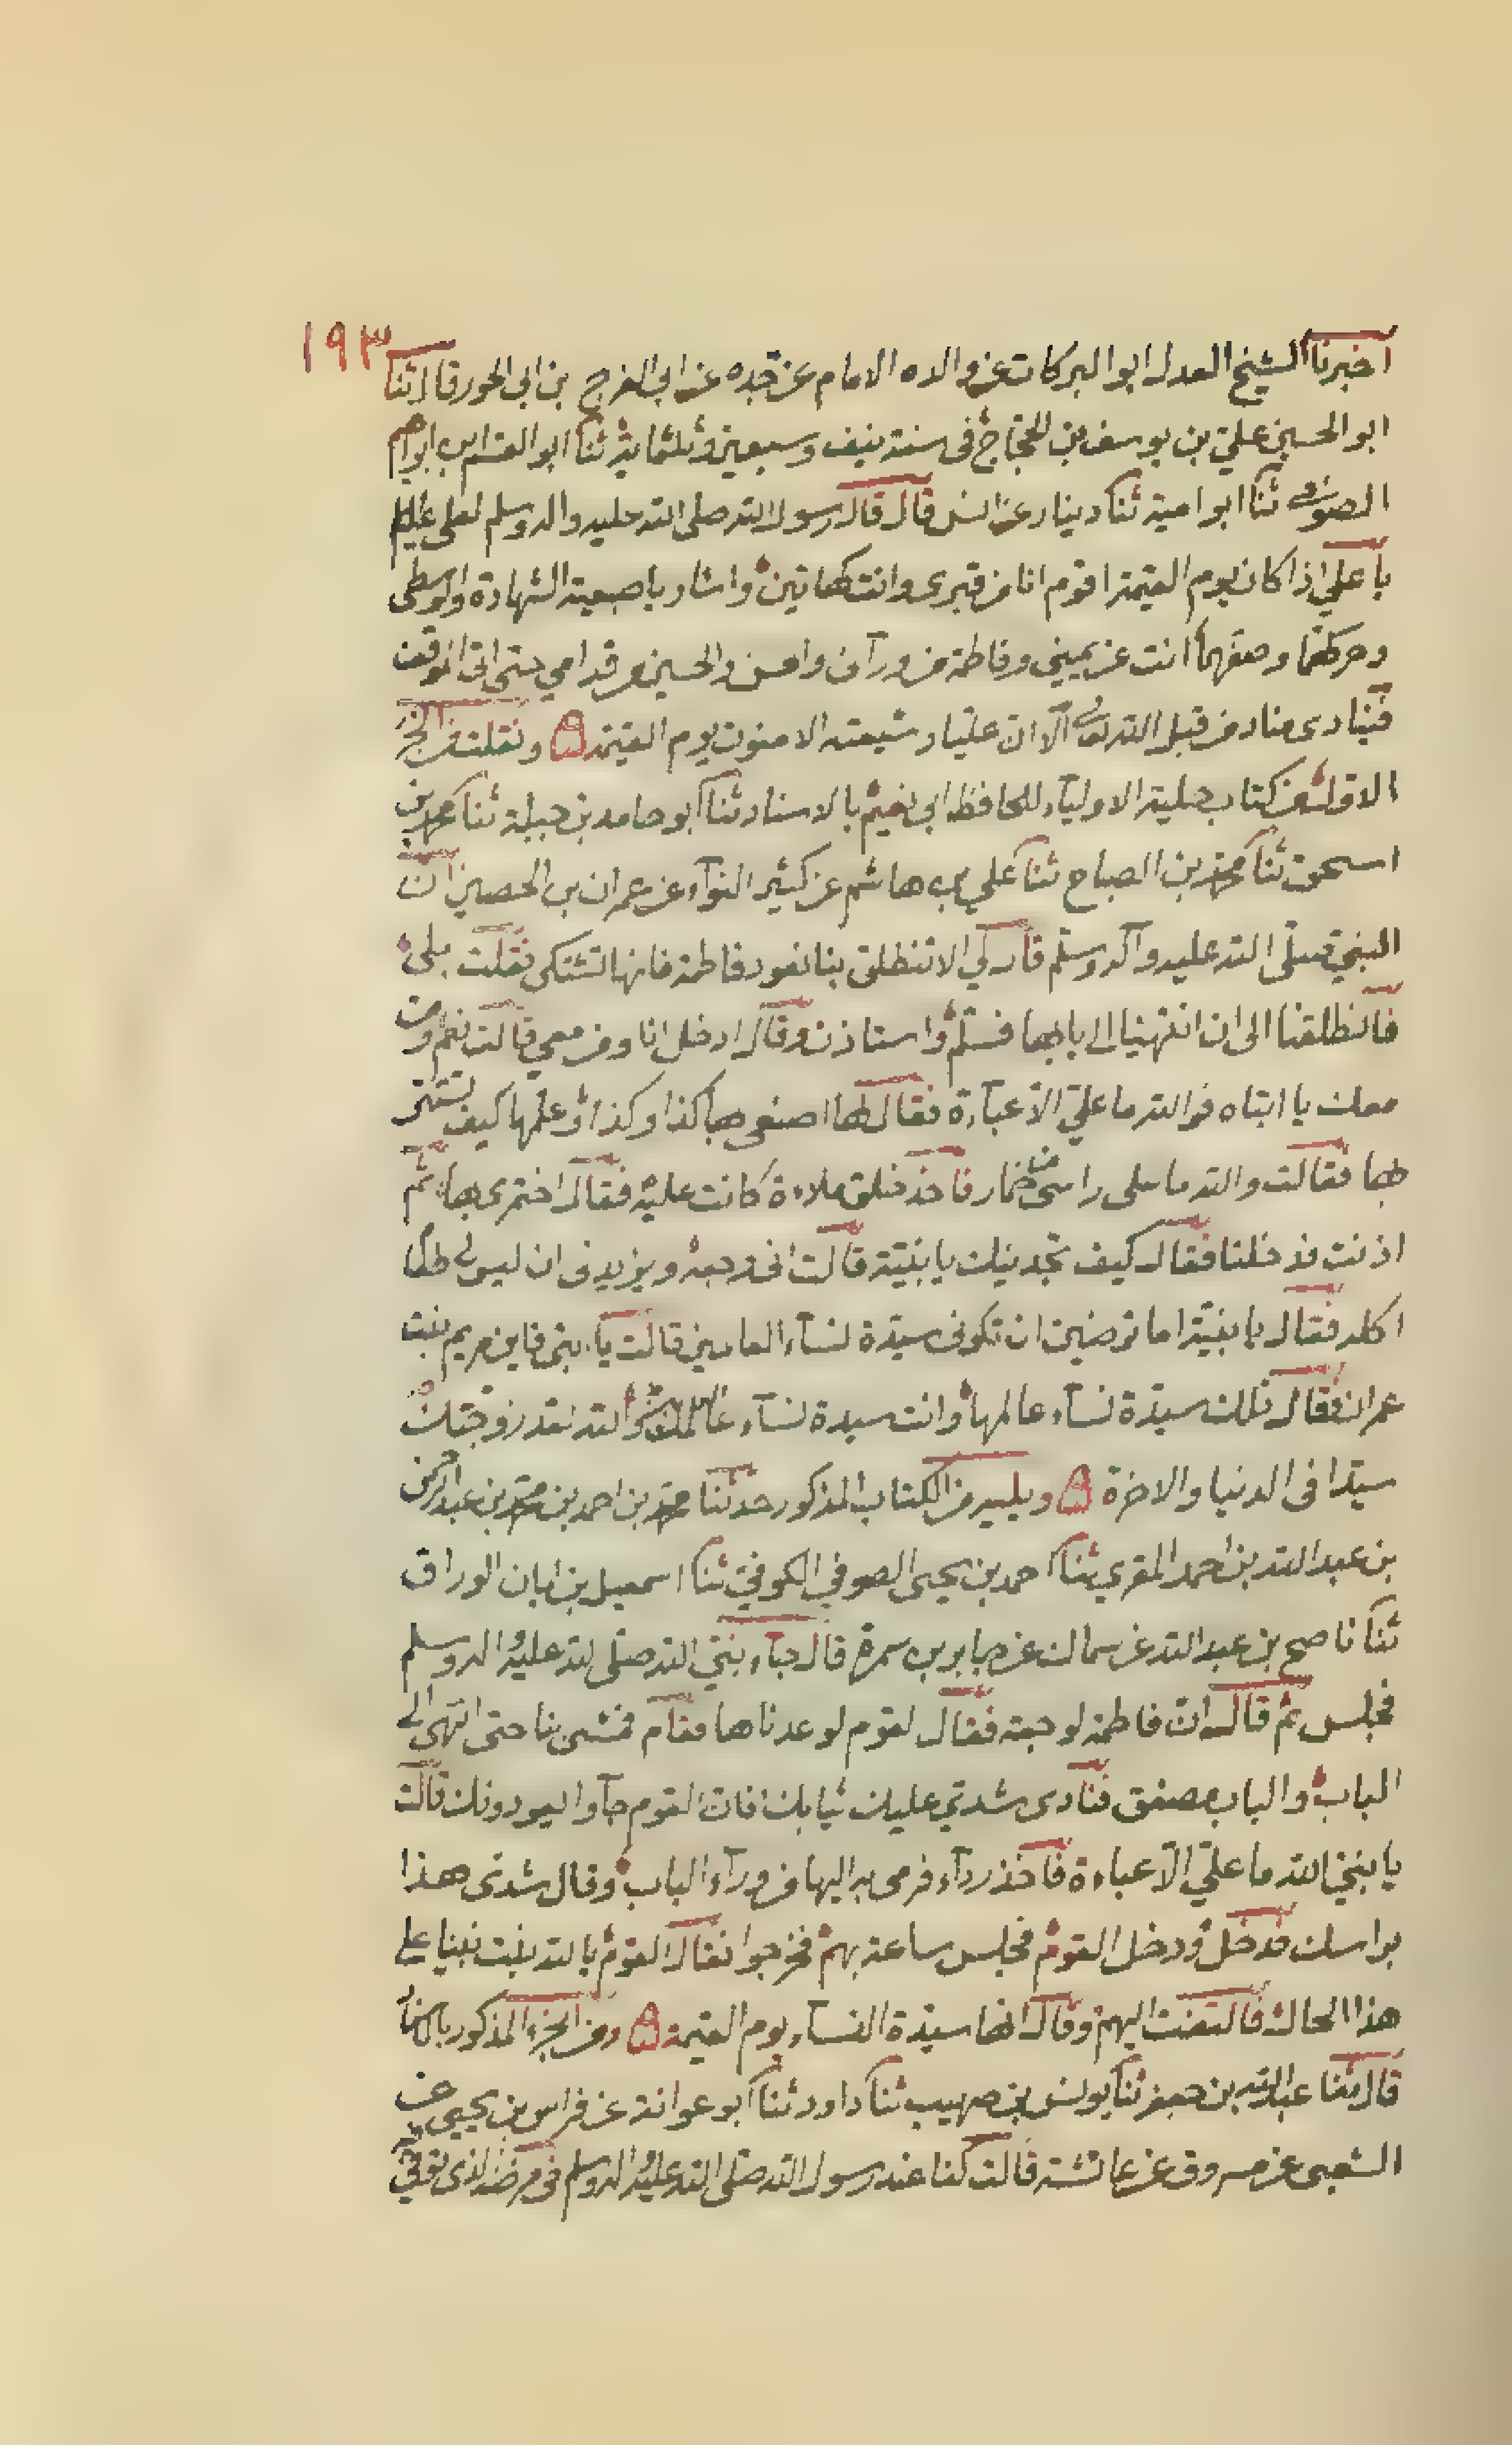 ١٩٣
اخبرنا الشيخ العدل ابو البركات عن والده الامام عن جده عن ابي الفرج بن ابي الحور قال ثنا
ابو الحسين علي بن يوسف بن الحجاج في سنة نيف وسبعين وثلثماية ثنا ابو القسم بن ابراهيم
الصوفي ثنا ابو امية ثنا دينار عن انس قال قال رسول الله صلى الله عليه واله وسلم لعلي عليلم
يا علي اذا كان يوم القيمة اقوم انا من قبري وانت كهاتين واشار باصبعيه الشهادة والوسطى
وحركهما وصفهما انت عن يميني وفاطمة من ورآئي والحسن والحسين من قدامي حتى اتى الموقف
فينادى مناد من قبل الله تعالى الا ان عليا وشيعته الامنون يوم القيمة ونقلت من الجزء
الاول من كتاب حلية الاوليآء للحافظ ابي نعيم بالاسناد ثنا ابو حامد بن جبلة ثنا محمد بن
اسحق ثنا محمد بن الصباح ثنا علي بن هاشم عن كثير النوآء عن عمران بن الحصين ان
النبي صلى الله عليه وآله وسلم قال لي الا تنطلق بنا نعود فاطمة فانها تشتكي فقلت بلى
فانطلقنا الى ان انتهينا الى بابها فسلم واستاذن وقال ادخل انا ومن معي قالت نعم ومن
معك يا ابتاه فوالله ما علي الا عبآءة فقال لها اصنعي بها كذا وكذا وعلمها كيف تستتر
بها فقالت والله ما على راسي من خمار فاخذ خلق ملاءة كانت عليه فقال اختمري بها ثم
اذنت فدخلنا فقال كيف تجدينك يا بنية قالت اني وجعة ويزيدني ان ليس لي طعام
اكله فقال يا بنية اما ترضين ان تكوني سيدة نسآء العالمين قالت يا ابتي فاين مريم بنت
عمران فقال تلك سيدة نسآء عالمها وانت سيدة نسآء عالمك والله لقد زوجتك
سيدا في الدنيا والاخرة ويليه من الكتاب المذكور حدثنا محمد بن احمد بن محمد بن عبد الرحمن
بن عبد الله بن احمد المقري ثنا احمد بن يحيى الصوفي الكوفي ثنا اسمعيل بن ابان الوراق
ثنا ناصح بن عبد الله عن سماك عن جابر بن سمرة قال جآء نبي الله صلى الله عليه واله وسلم
فجلس ثم قال ان فاطمة لوجعة فقال القوم لو عدناها فقام فمشى بنا حتى انتهى الى
الباب والباب مصفق فنادى شدي عليك ثيابك فان القوم جآوا ليعودونك قالت
يا نبي الله ما علي الا عباءة فاخذ ردآء فرمى به اليها من ورآء الباب وقال شدى هذا
براسك فدخل ودخل القوم فجلس ساعة بهم فخرجوا فقال القوم بالله بنت نبينا على
هذا الحال فالتفت اليهم وقال انها سيدة النسآء يوم القيمة ومن الجزء المذكور بالاسناد
قال ثنا عبد الله بن جعفر ثنا يونس بن حبيب ثنا داود ثنا ابو عوانة عن فراس بن يحيى عن
الشعبي عن مسروق عن عائشة قالت كنا عند رسول الله صلى الله عليه واله وسلم في مرضه الذى توفي فيه